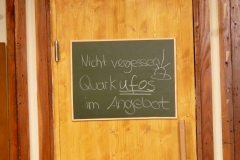 Nicht vegessen!
Quarkufos
im Angebot